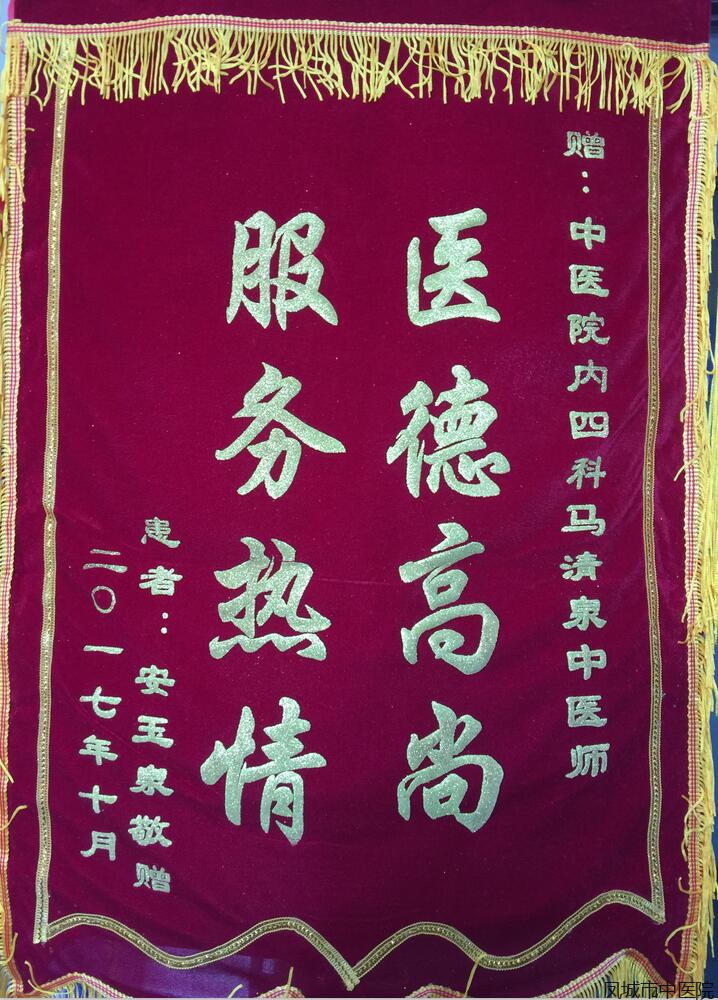 赠：中医院内四科马清泉中医师
医德高尚
服务热情
患者：安玉泉敬赠
二〇一七年十月
凤城市中医院